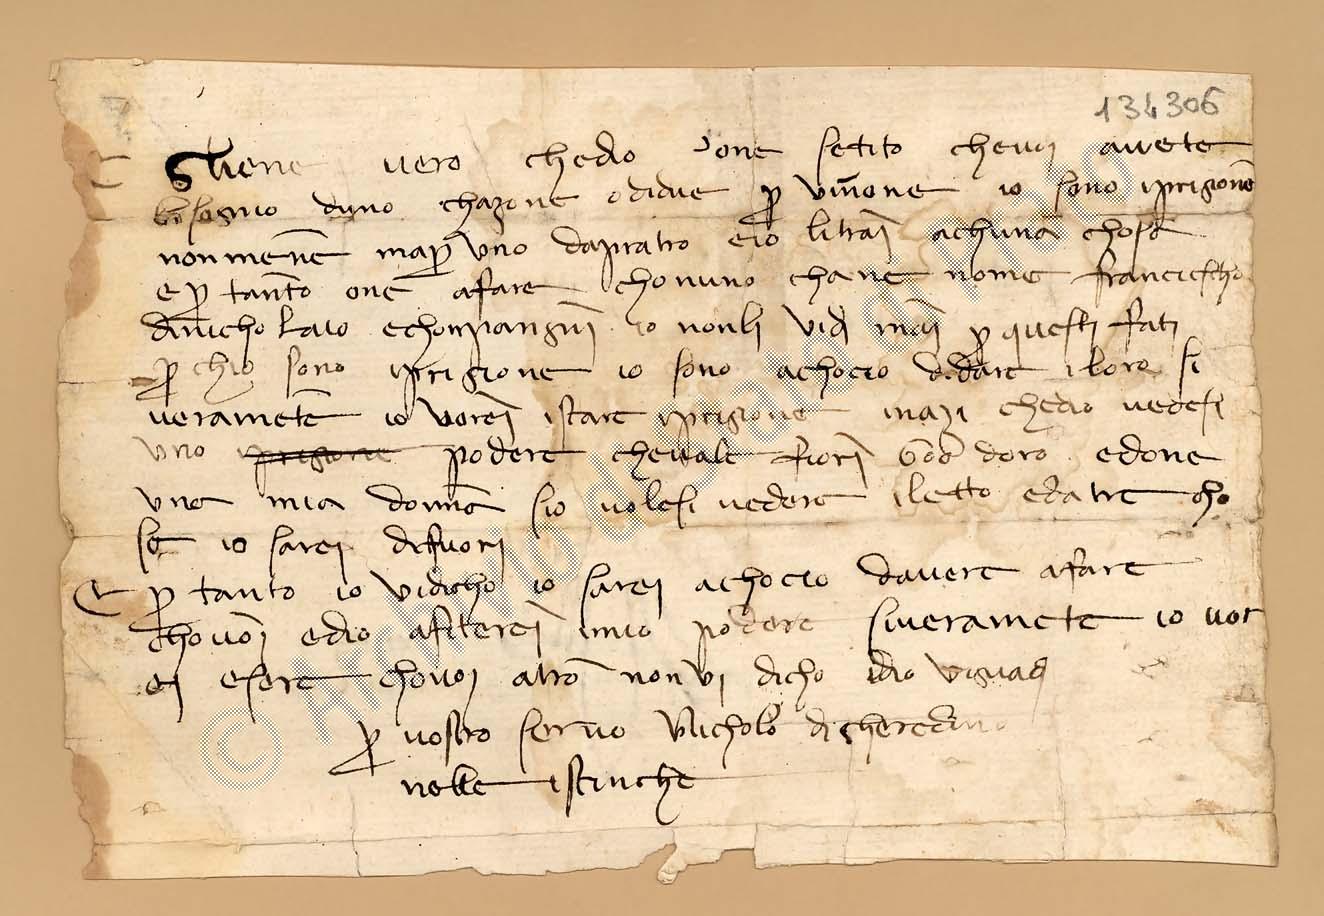 134306
Sliene vero chedio one setito chevoi avete
bisognio duno chazone odidue p umone io sono iprigione
nonmene map uno dapratro eio litrai achuna chosa
e p tanto one afare chonuno chane nome franciescho
dinicholaio echompangni io nonli vidi mai p questi fati
p chio sono iprigione io sono achocio didare iloro si
veramete io vorei istare iprigione inazi chedio vedesi
uno iprigione podere chevale fiori doro edone
une mia donna sio volesi vedere iletto edatre cho
se io sarei difuori
E p tanto io vidicho io sarei achocio davere afare
chovoi edio afiterei imio podere siveramete io vor
ei esere chovoi atro non vi dicho idio viguadi
p vostro servo Nicholo di
nelle istinche
© Archivio di Stato di Prato